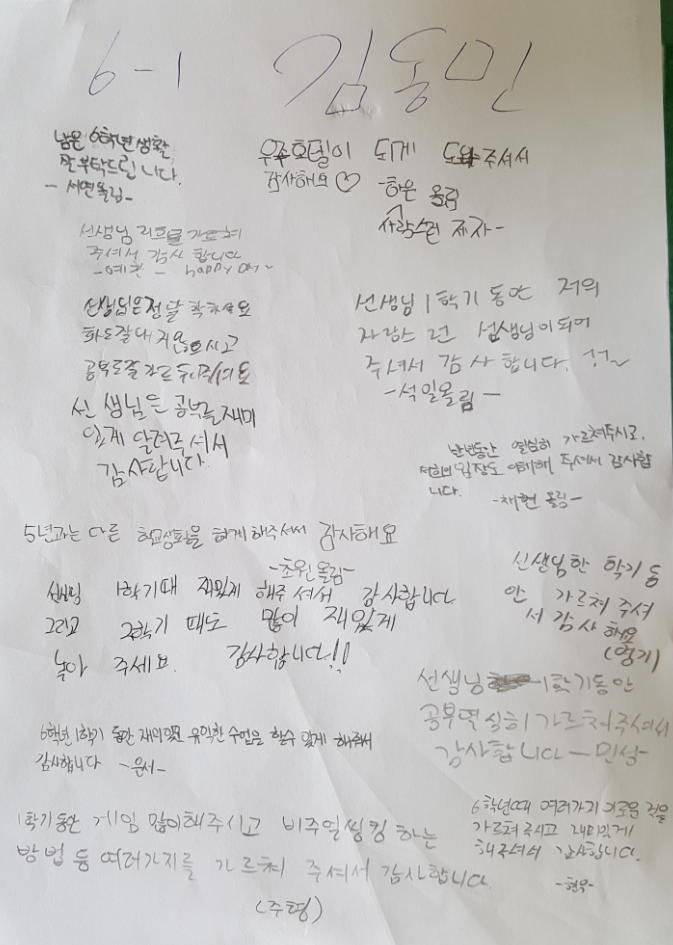 6-1 김동민
남은 6학년 생활
잘 부탁드립니다.
- 서연올림 -
우주호텔이 되게 도와주셔서
감사해요♡ -하은 올림
사랑스런 제자-
선생님 리코더 가르쳐
주셔서 감사 합니다
- happy day~
선생님은 정말 착하세요
화도 잘 내지 않으시고
공부도 잘 가르쳐주세요
선생님 1학기 동안 저의
자랑스런 선생님이 되어
주셔서 감사합니다.
-석일올림-
선생님은 공부를 재미
있게 알려주셔서
감사합니다.
반년동안 열심히 가르쳐주시고,
저희의 입장도 이해해 주셔서 감사합
니다.
-채현 올림-
5년과는 다른 학교생활을 하게 해주셔서 감사해요
-초원올림-
선생님 1학기때 재밌게 해주셔서 감사합니다
그리고 2학기 때도 많이 재밌게
놀아 주세요. 감사합니다!!
선생님 한 학기 동
안 가르쳐 주셔
서 감사해요
선생님 1학기동안
공부열심히 가르쳐주셔서
감사합니다 -민성-
6학년 1학기 동안 재미있고 유익한 수업을 할수 있게 해줘서
감사합니다 -윤서-
1학기동안 게임 많이해주시고 비주얼씽킹 하는
방법 등 여러가지를 가르쳐 주셔서 감사합니다.
(주형)
6학년때 여러가지 이로운 것을
가르쳐 주시고 재미있게
해주셔서 감사합니다.
-현우-